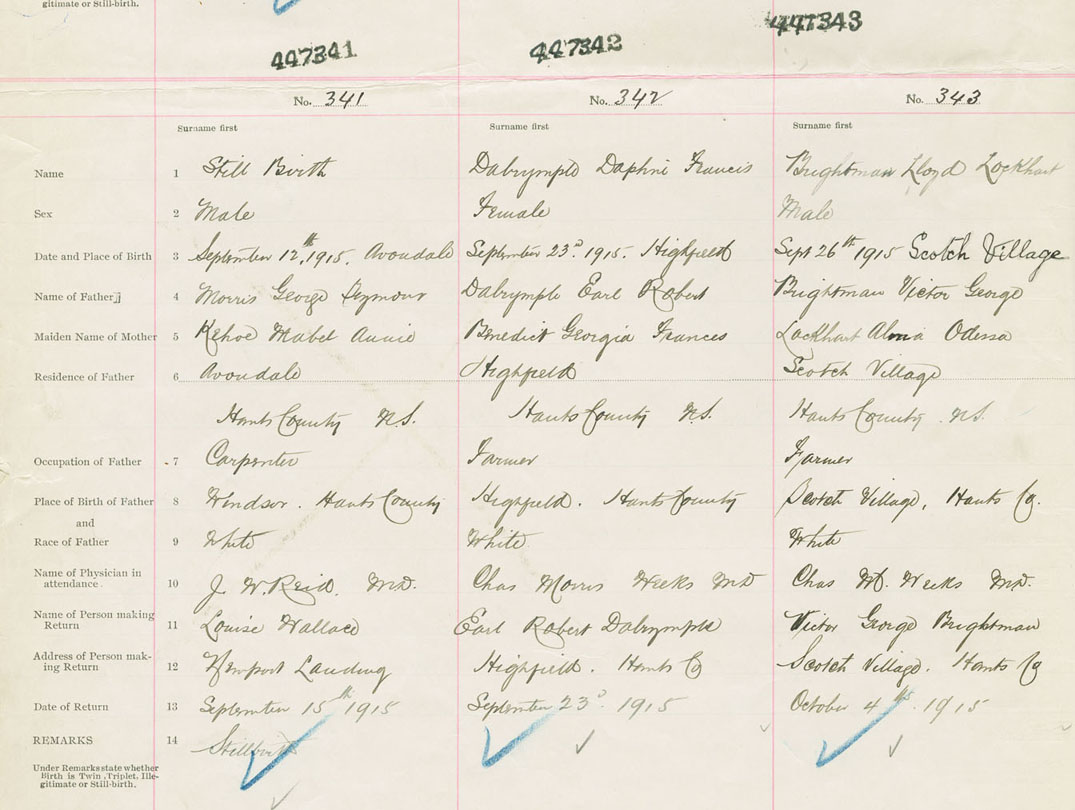 gitimate or Still-birth.
447341 447342 447343
No. 341 No. 342 No. 343
Surname first Surname first Surname first
Name 1 Still Birth Dalrymple Daphne Francis Brightman Lloyd Lockhart
Sex 2 Male Female Male
Date and Place of Birth 3 September 12th, 1915. Avondale September 23d. 1915. Highfield Sept 26th 1915 Scotch Village
Name of Father 4 Morris George Seymour Dalrymple Earl Robert Brightman Victor George
Maiden Name of Mother 5 Kehoe Mabel Annie Benedict Georgia Frances Lockhart Alma Odessa
Residence of Father 6 Avondale Highfield Scotch Village
Hants County N.S. Hants County N.S. Hants County N.S.
Occupation of Father 7 Carpenter Farmer Farmer
Place of Birth of Father 8 Windsor. Hants County Highfield. Hants County Scotch Village, Hants Co.
and
Race of Father 9 White White White
Name of Physician in
attendance 10 J. W. Reid. M.D. Chas Morris Weeks MD Chas M. Weeks M.D.
Name of Person making
Return 11 Louise Wallace Earl Robert Dalrymple Victor George Brightman
Address of Person mak-
ing Return 12 Newport Landing Highfield. Hants Co Scotch Village. Hants Co
Date of Return 13 September 15th 1915 September 23d. 1915 October 4th. 1915
REMARKS 14 Stillbirth
Under Remarks state whether
Birth is Twin, Triplet, Ille-
gitimate or Still-birth.